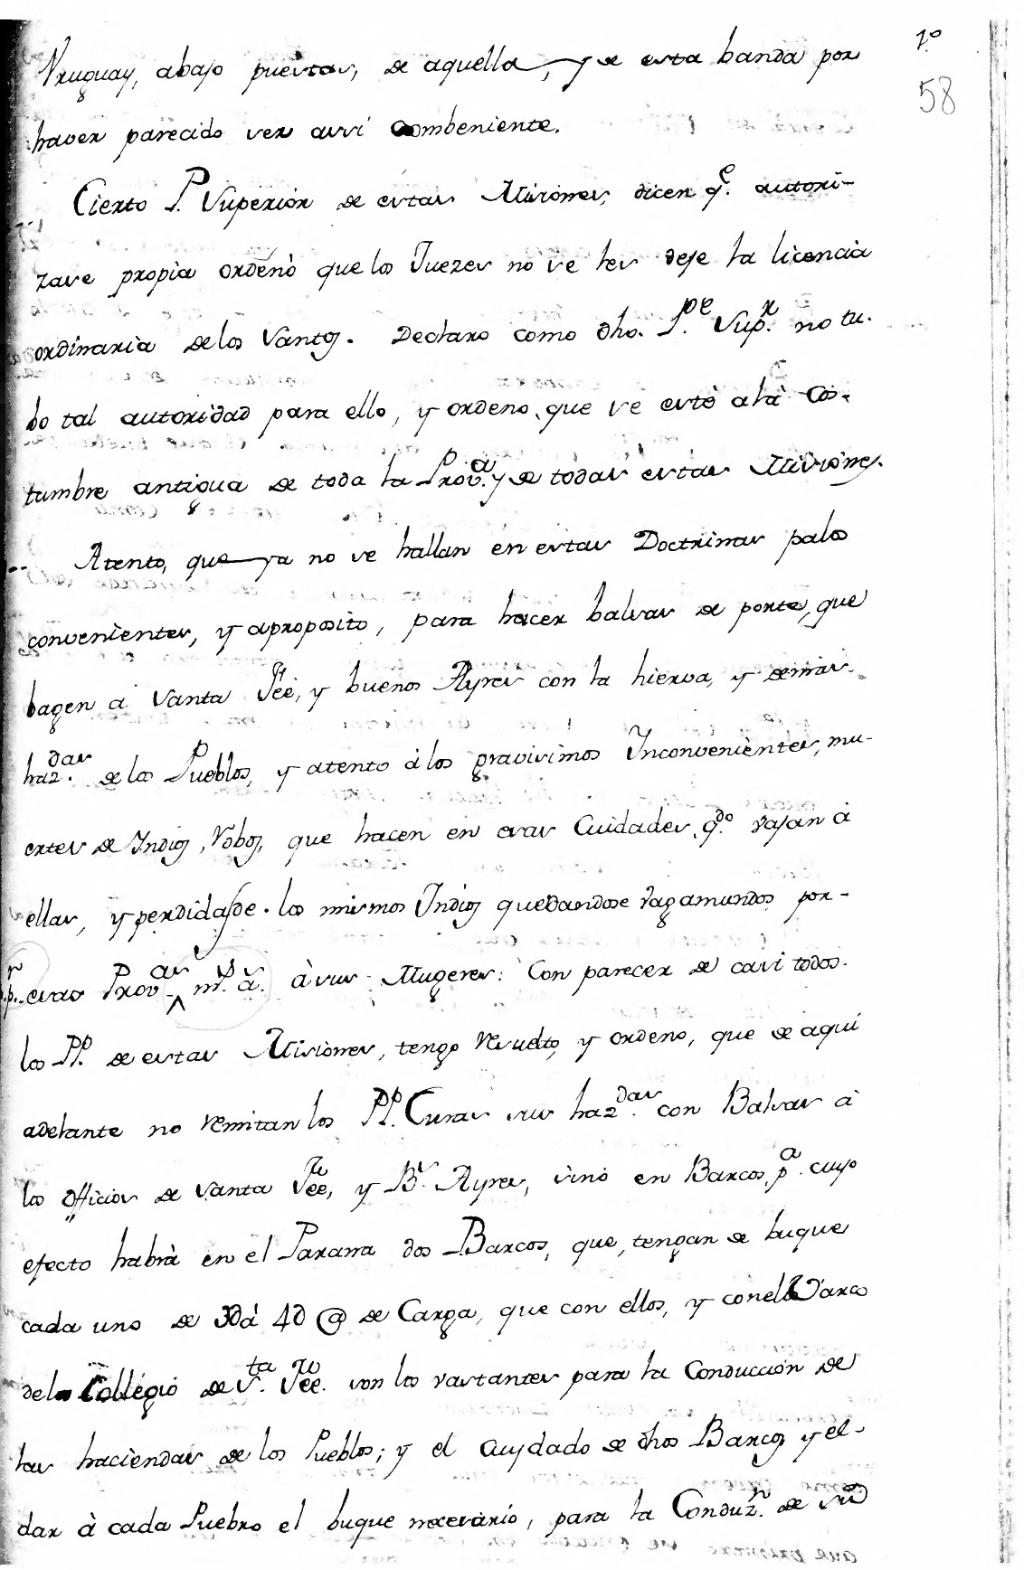 7.º
58
Uruguay, abajo puestas, de aquella, y de esta banda por
haver parecido ser assi combeniente.
Cierto P. Superior de estas Misiones, dicen q.e autori-
zase propia ordenò que los Juezes no se les deje la licencia
ordinaria de los Santos. Declaro como dho. P.pe Sup.r no tu-
bo tal autoridad para ello, y ordeno, que se estè a la Cos-
tumbre antigua de toda la Prov.a y de todas estas Misiones.
Atento, que ya no se hallan en estas Doctrinas palos
convenientes, y aproposito, para hacer balsas de porte, que
bagen à Santa Fèe, y buenos Ayres con la hierva, y demas
haz.das de los Pueblos, y atento à los gravisimos Inconvenientes, mu-
ertes de Indios, Robos, que hacen en esas Cuidades, q.do vajan à
ellas, y perdidas de los mismos Indios quedandose vagamundos por-
esas Prov.as m.s a.s à sus Mugeres: Con parecer de casi todos
los PP. de estas Misiones, tengo resuelto, y ordeno, que de aqui
adelante no remitan los PP. Curas sus haz.das con Balsas à
los Officios de Santa Fèe, y B.s Ayres, sino en Barcos, p.a cuyo
efecto habrà en el Parana dos Barcos, que tengan de buque
cada uno de 3D à 4D @ de Carga, que con ellos, y con el Varco
del Collegio de S.ta Fèe son los vastantes para la Conducción de
las haciendas de los Pueblos; y el Cuydado de dhos Barcos y el
dar à cada Puebro el buque necesario, para la Conduz.n de sus